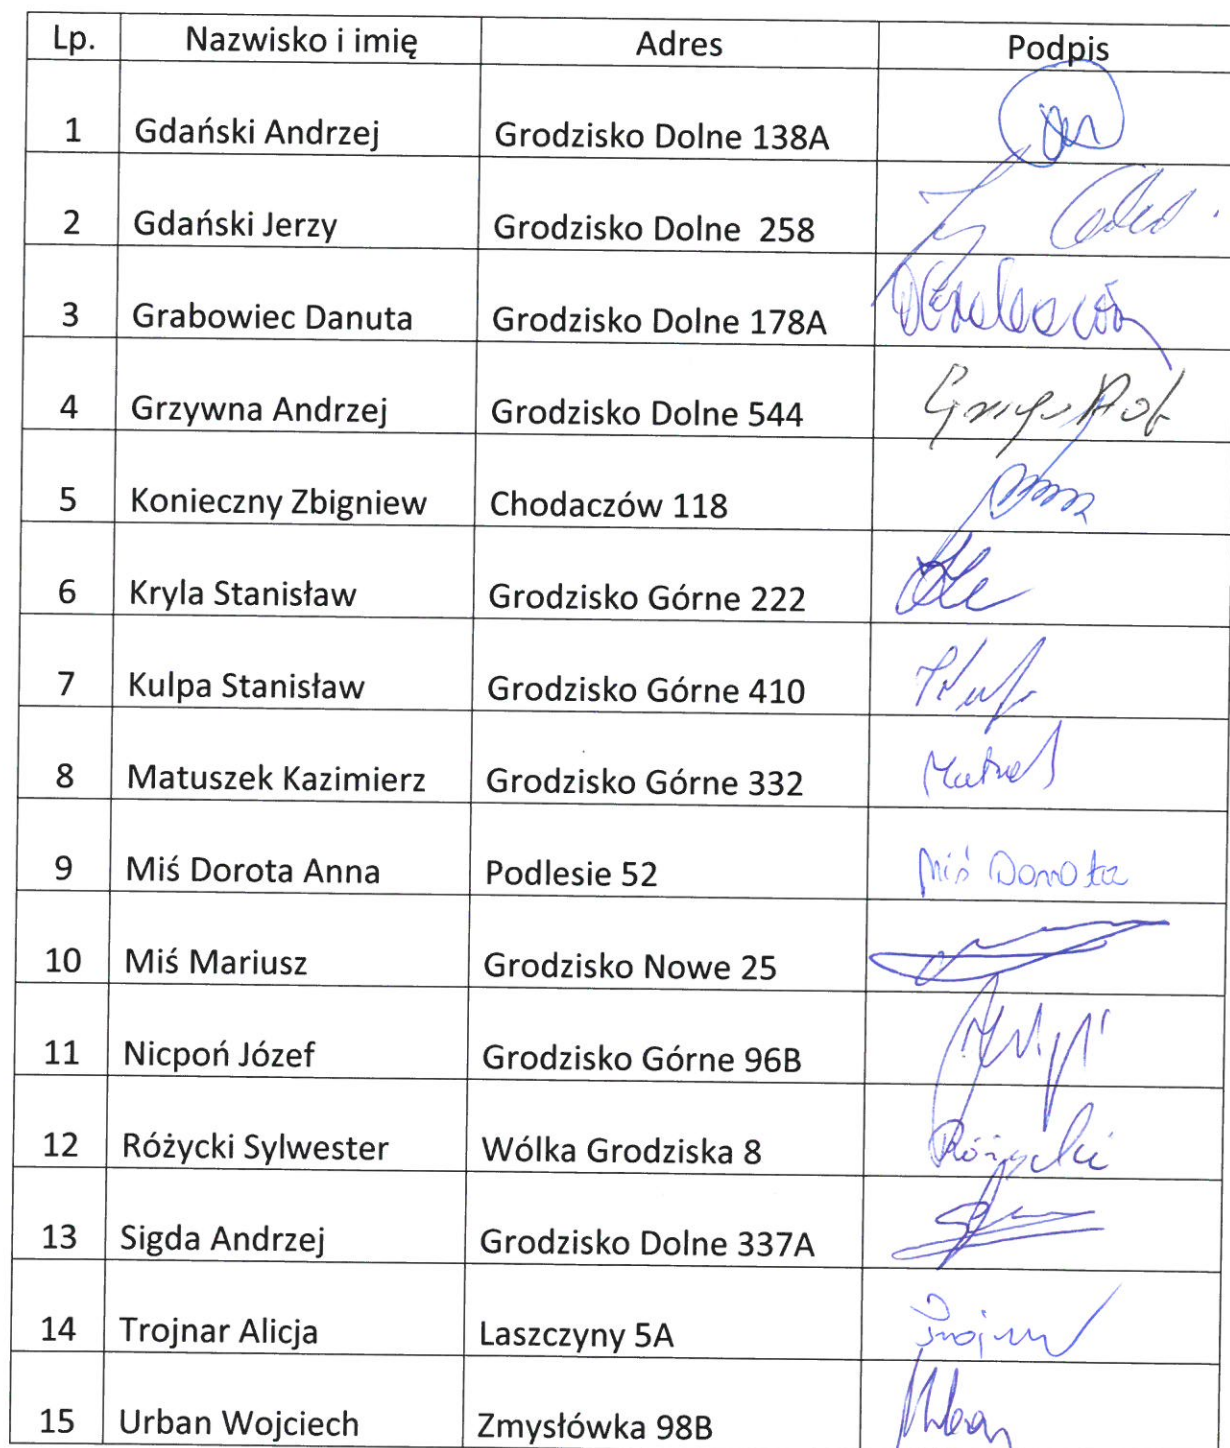 Lp. Nazwisko i imię Adres Podpis
1 Gdański Andrzej Grodzisko Dolne 138A
2 Gdański Jerzy Grodzisko Dolne 258
3 Grabowiec Danuta Grodzisko Dolne 178A
4 Grzywna Andrzej Grodzisko Dolne 544
5 Konieczny Zbigniew Chodaczów 118
6 Kryla Stanisław Grodzisko Górne 222
7 Kulpa Stanisław Grodzisko Górne 410
8 Matuszek Kazimierz Grodzisko Górne 332
9 Miś Dorota Anna Podlesie 52 Miś Dorota
10 Miś Mariusz Grodzisko Nowe 25
11 Nicpoń Józef Grodzisko Górne 96B
12 Różycki Sylwester Wólka Grodziska 8 Różycki
13 Sigda Andrzej Grodzisko Dolne 337A
14 Trojnar Alicja Laszczyny 5A
15 Urban Wojciech Zmysłówka 98B